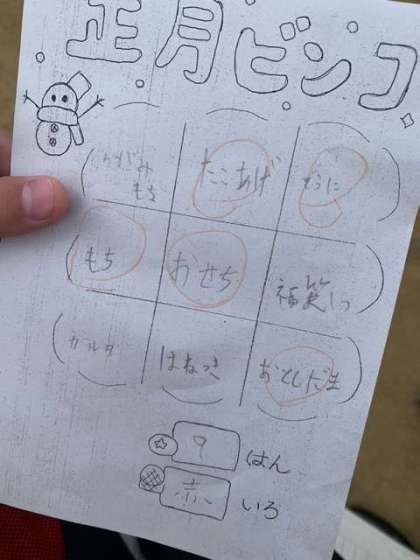 正月ビンゴ
かがみ
もち
たこあげ
ぞうに
もち
おせち
福笑い
カルタ
はねつき
おとしだま
9
はん
赤
いろ